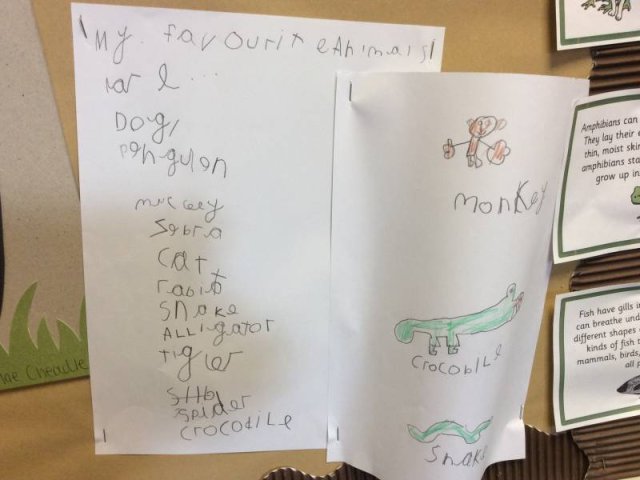 My favourit eAnimals
ar e ...
Dog,
Penguien
muckey
Sebra
Cat,
rabit
snake
ALLigator
tigier
spider
crocodile
monkey
crocodile
snake
Amphibians can
They lay their
thin, moist skin
amphibians sta
grow up in
Fish have gills
can breathe und
different shapes
kinds of fish t
mammals, birds,
all